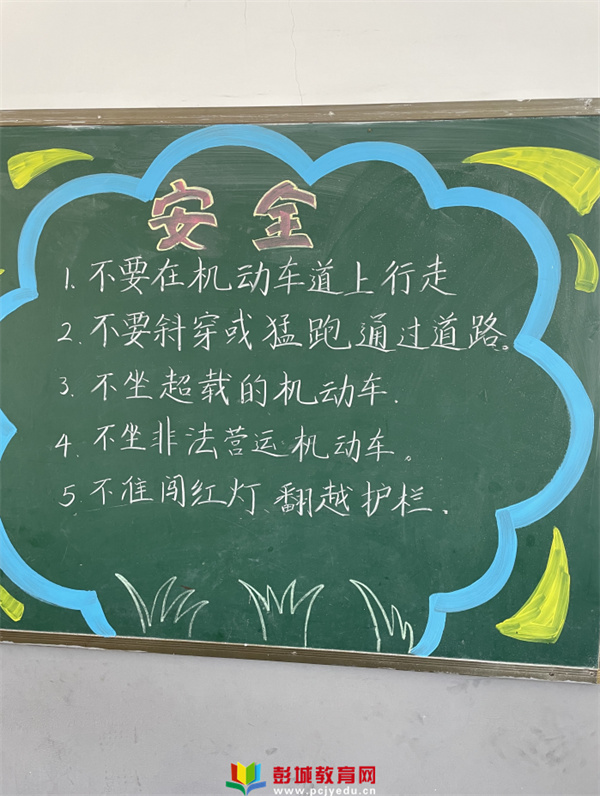 安全
1. 不要在机动车道上行走
2. 不要斜穿或猛跑通过道路。
3. 不坐超载的机动车.
4. 不坐非法营运机动车。
5. 不准闯红灯 翻越护栏.
彭城教育网
www.pcjyedu.cn